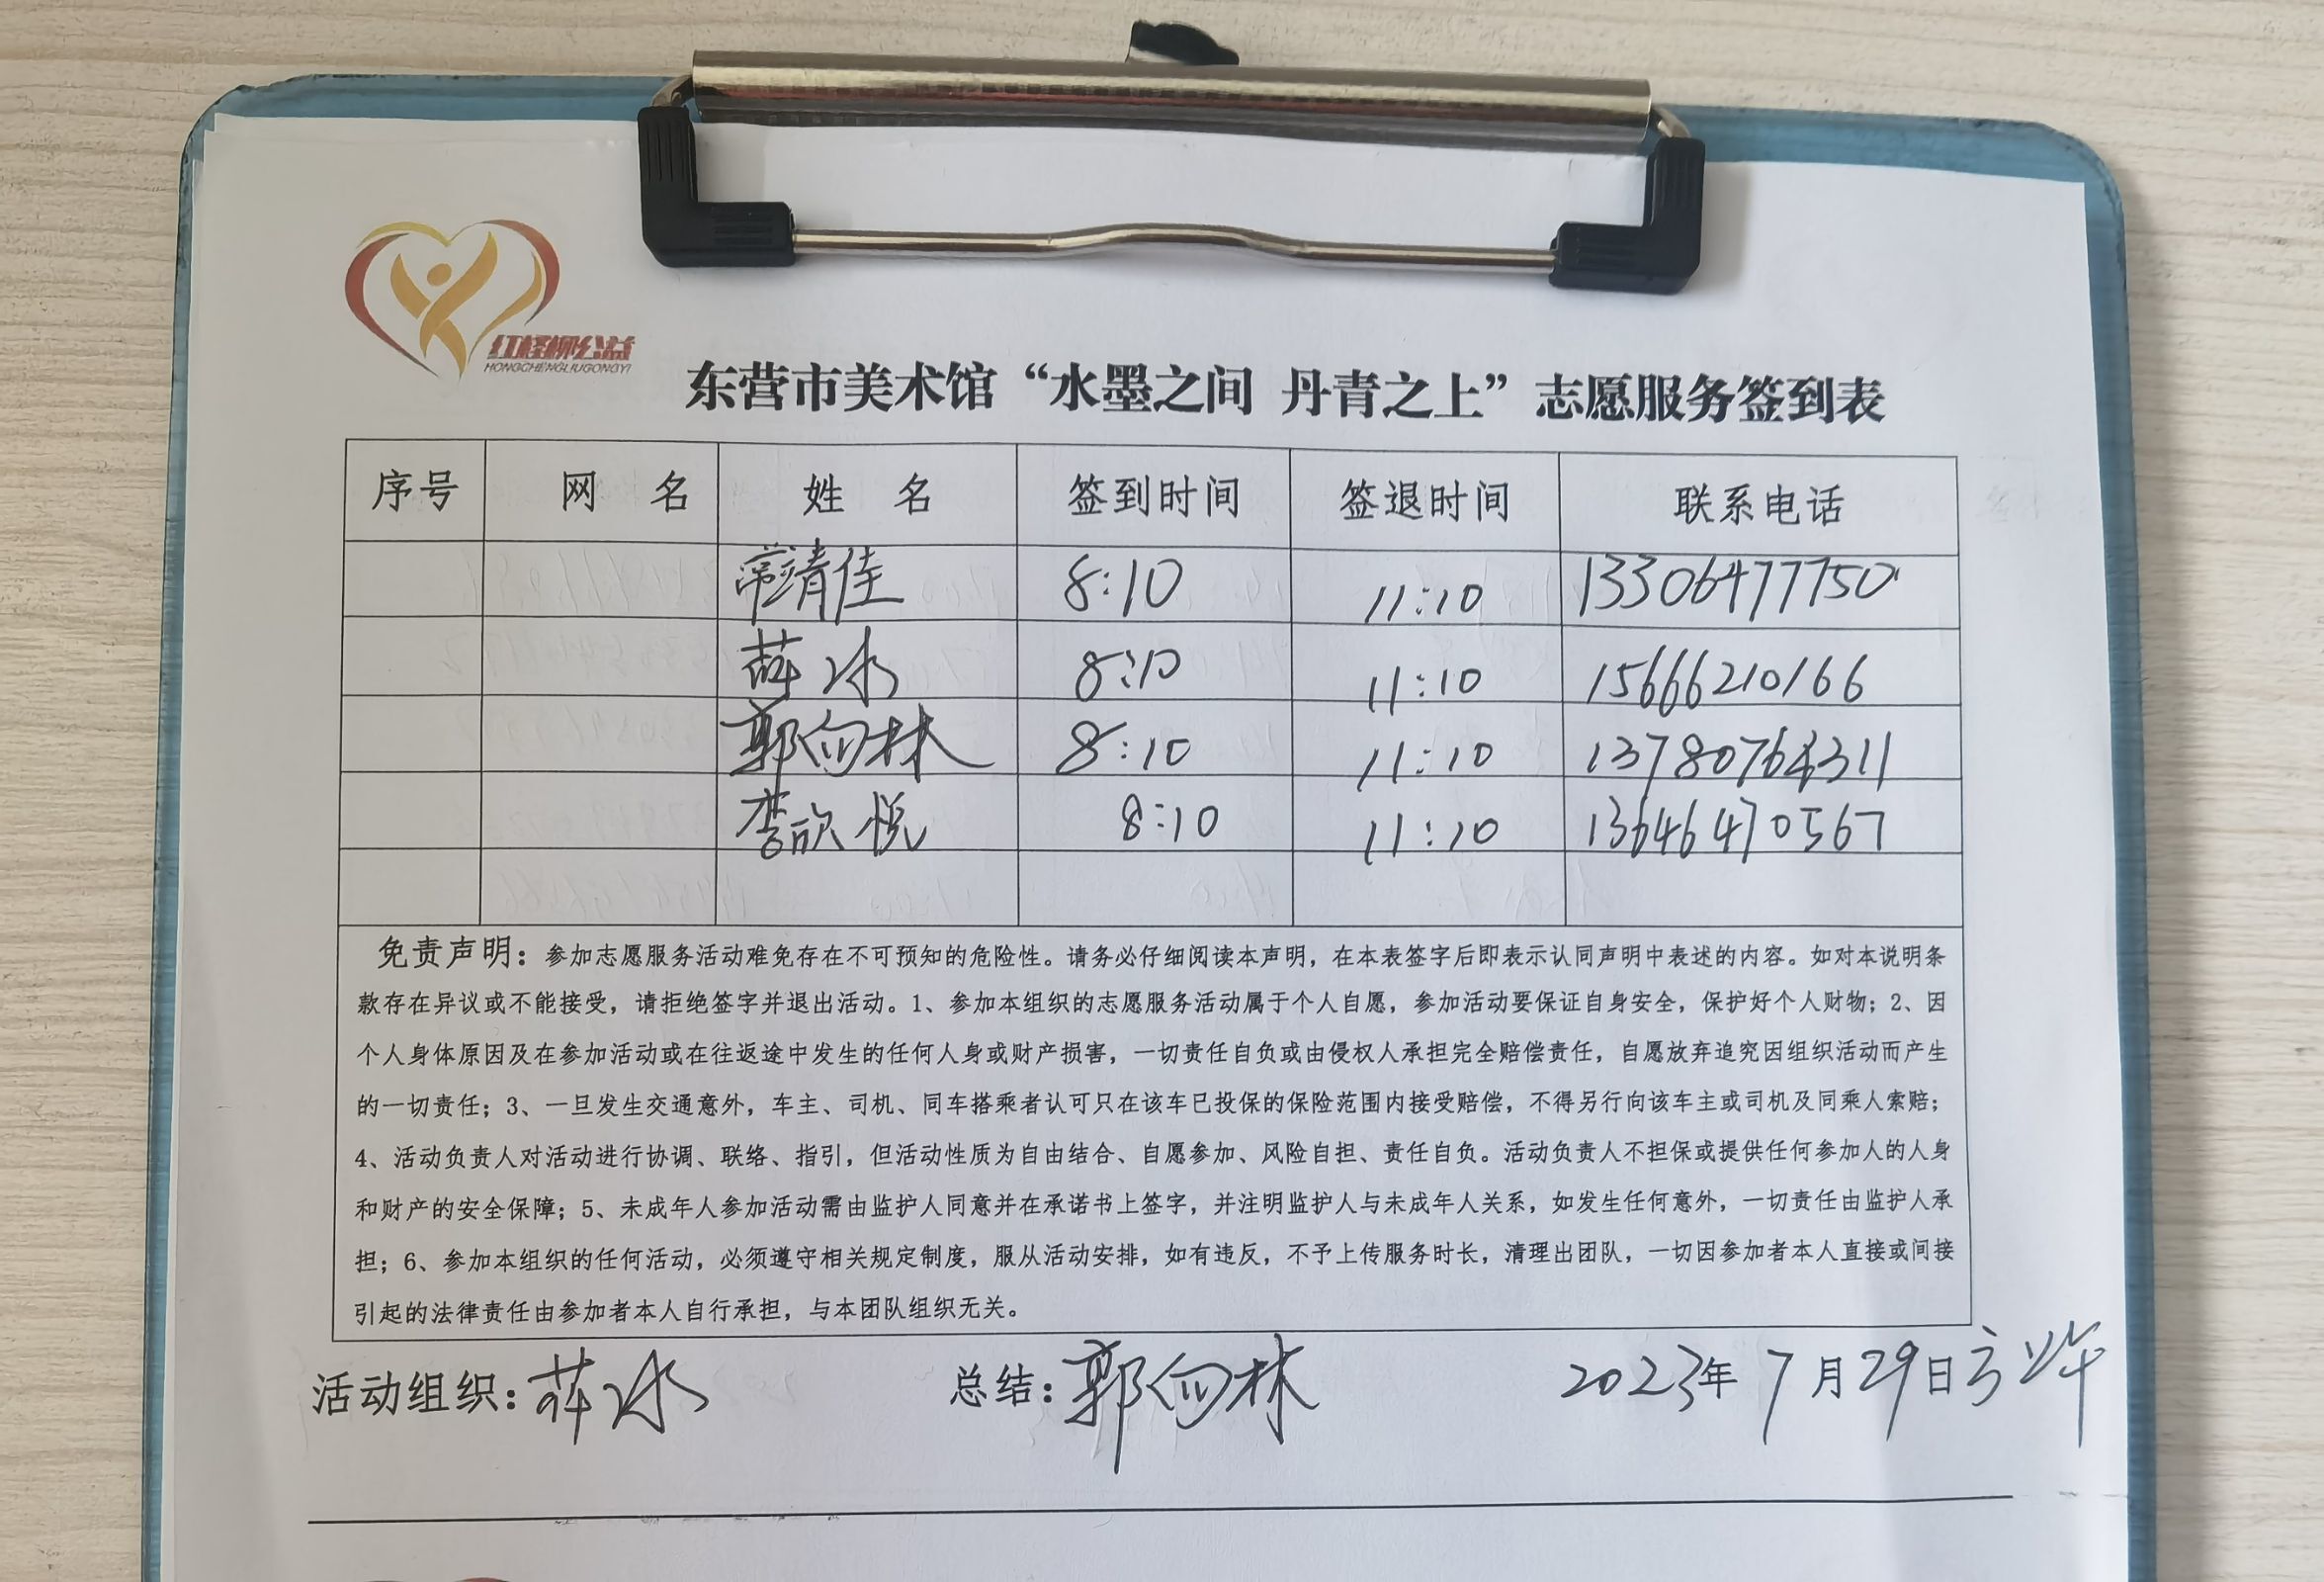 红柽柳公益
HONGCHENGLIUGONGYI
东营市美术馆“水墨之间 丹青之上”志愿服务签到表
序号 网 名 姓 名 签到时间 签退时间 联系电话
常靖佳 8:10 11:10 13306477750
薛冰 8:10 11:10 15666210166
郭向林 8:10 11:10
李欣悦 8:10 11:10 13646470567
免责声明：参加志愿服务活动难免存在不可预知的危险性。请务必仔细阅读本声明，在本表签字后即表示认同声明中表述的内容。如对本说明条
款存在异议或不能接受，请拒绝签字并退出活动。1、参加本组织的志愿服务活动属于个人自愿，参加活动要保证自身安全，保护好个人财物；2、因
个人身体原因及在参加活动或在往返途中发生的任何人身或财产损害，一切责任自负或由侵权人承担完全赔偿责任，自愿放弃追究因组织活动而产生
的一切责任；3、一旦发生交通意外，车主、司机、同车搭乘者认可只在该车已投保的保险范围内接受赔偿，不得另行向该车主或司机及同乘人索赔；
4、活动负责人对活动进行协调、联络、指引，但活动性质为自由结合、自愿参加、风险自担、责任自负。活动负责人不担保或提供任何参加人的人身
和财产的安全保障；5、未成年人参加活动需由监护人同意并在承诺书上签字，并注明监护人与未成年人关系，如发生任何意外，一切责任由监护人承
担；6、参加本组织的任何活动，必须遵守相关规定制度，服从活动安排，如有违反，不予上传服务时长，清理出团队，一切因参加者本人直接或间接
引起的法律责任由参加者本人自行承担，与本团队组织无关。
活动组织：薛冰 总结：郭向林 2023年7月29日